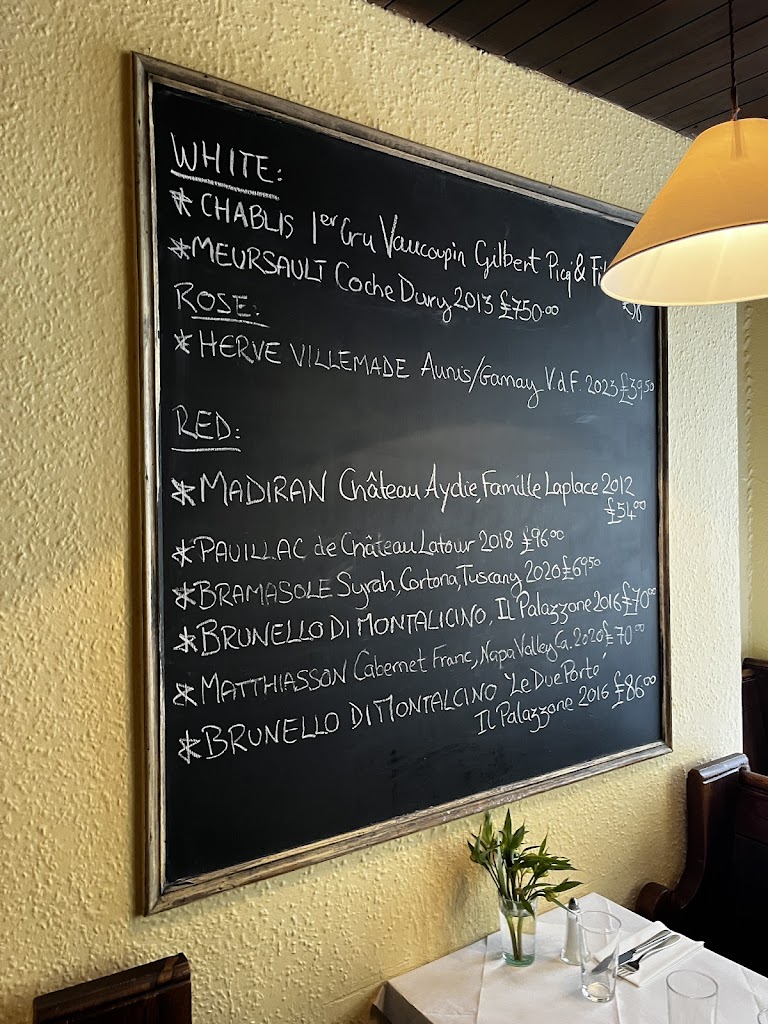 WHITE:
* CHABLIS 1er Cru Vaucoupin Gilbert Picq &
* MEURSAULT Coche Dury 2013 £750.00
ROSE:
* HERVE VILLEMADE Aunis/Gamay V.d.F. 2023 £39.50
RED:
* MADIRAN Château Aydie, Famille Laplace 2012
£54.00
* PAUILLAC de Château Latour 2018 £96.00
* BRAMASOLE Syrah, Cortona, Tuscany 2020 £69.50
* BRUNELLO DI MONTALICINO, IL Palazzone 2016 £70.00
* MATTHIASSON Cabernet Franc, Napa Valley Ca. 2020 £70.00
* BRUNELLO DI MONTALCINO 'Le Due Porte'
IL Palazzone 2016 £86.00